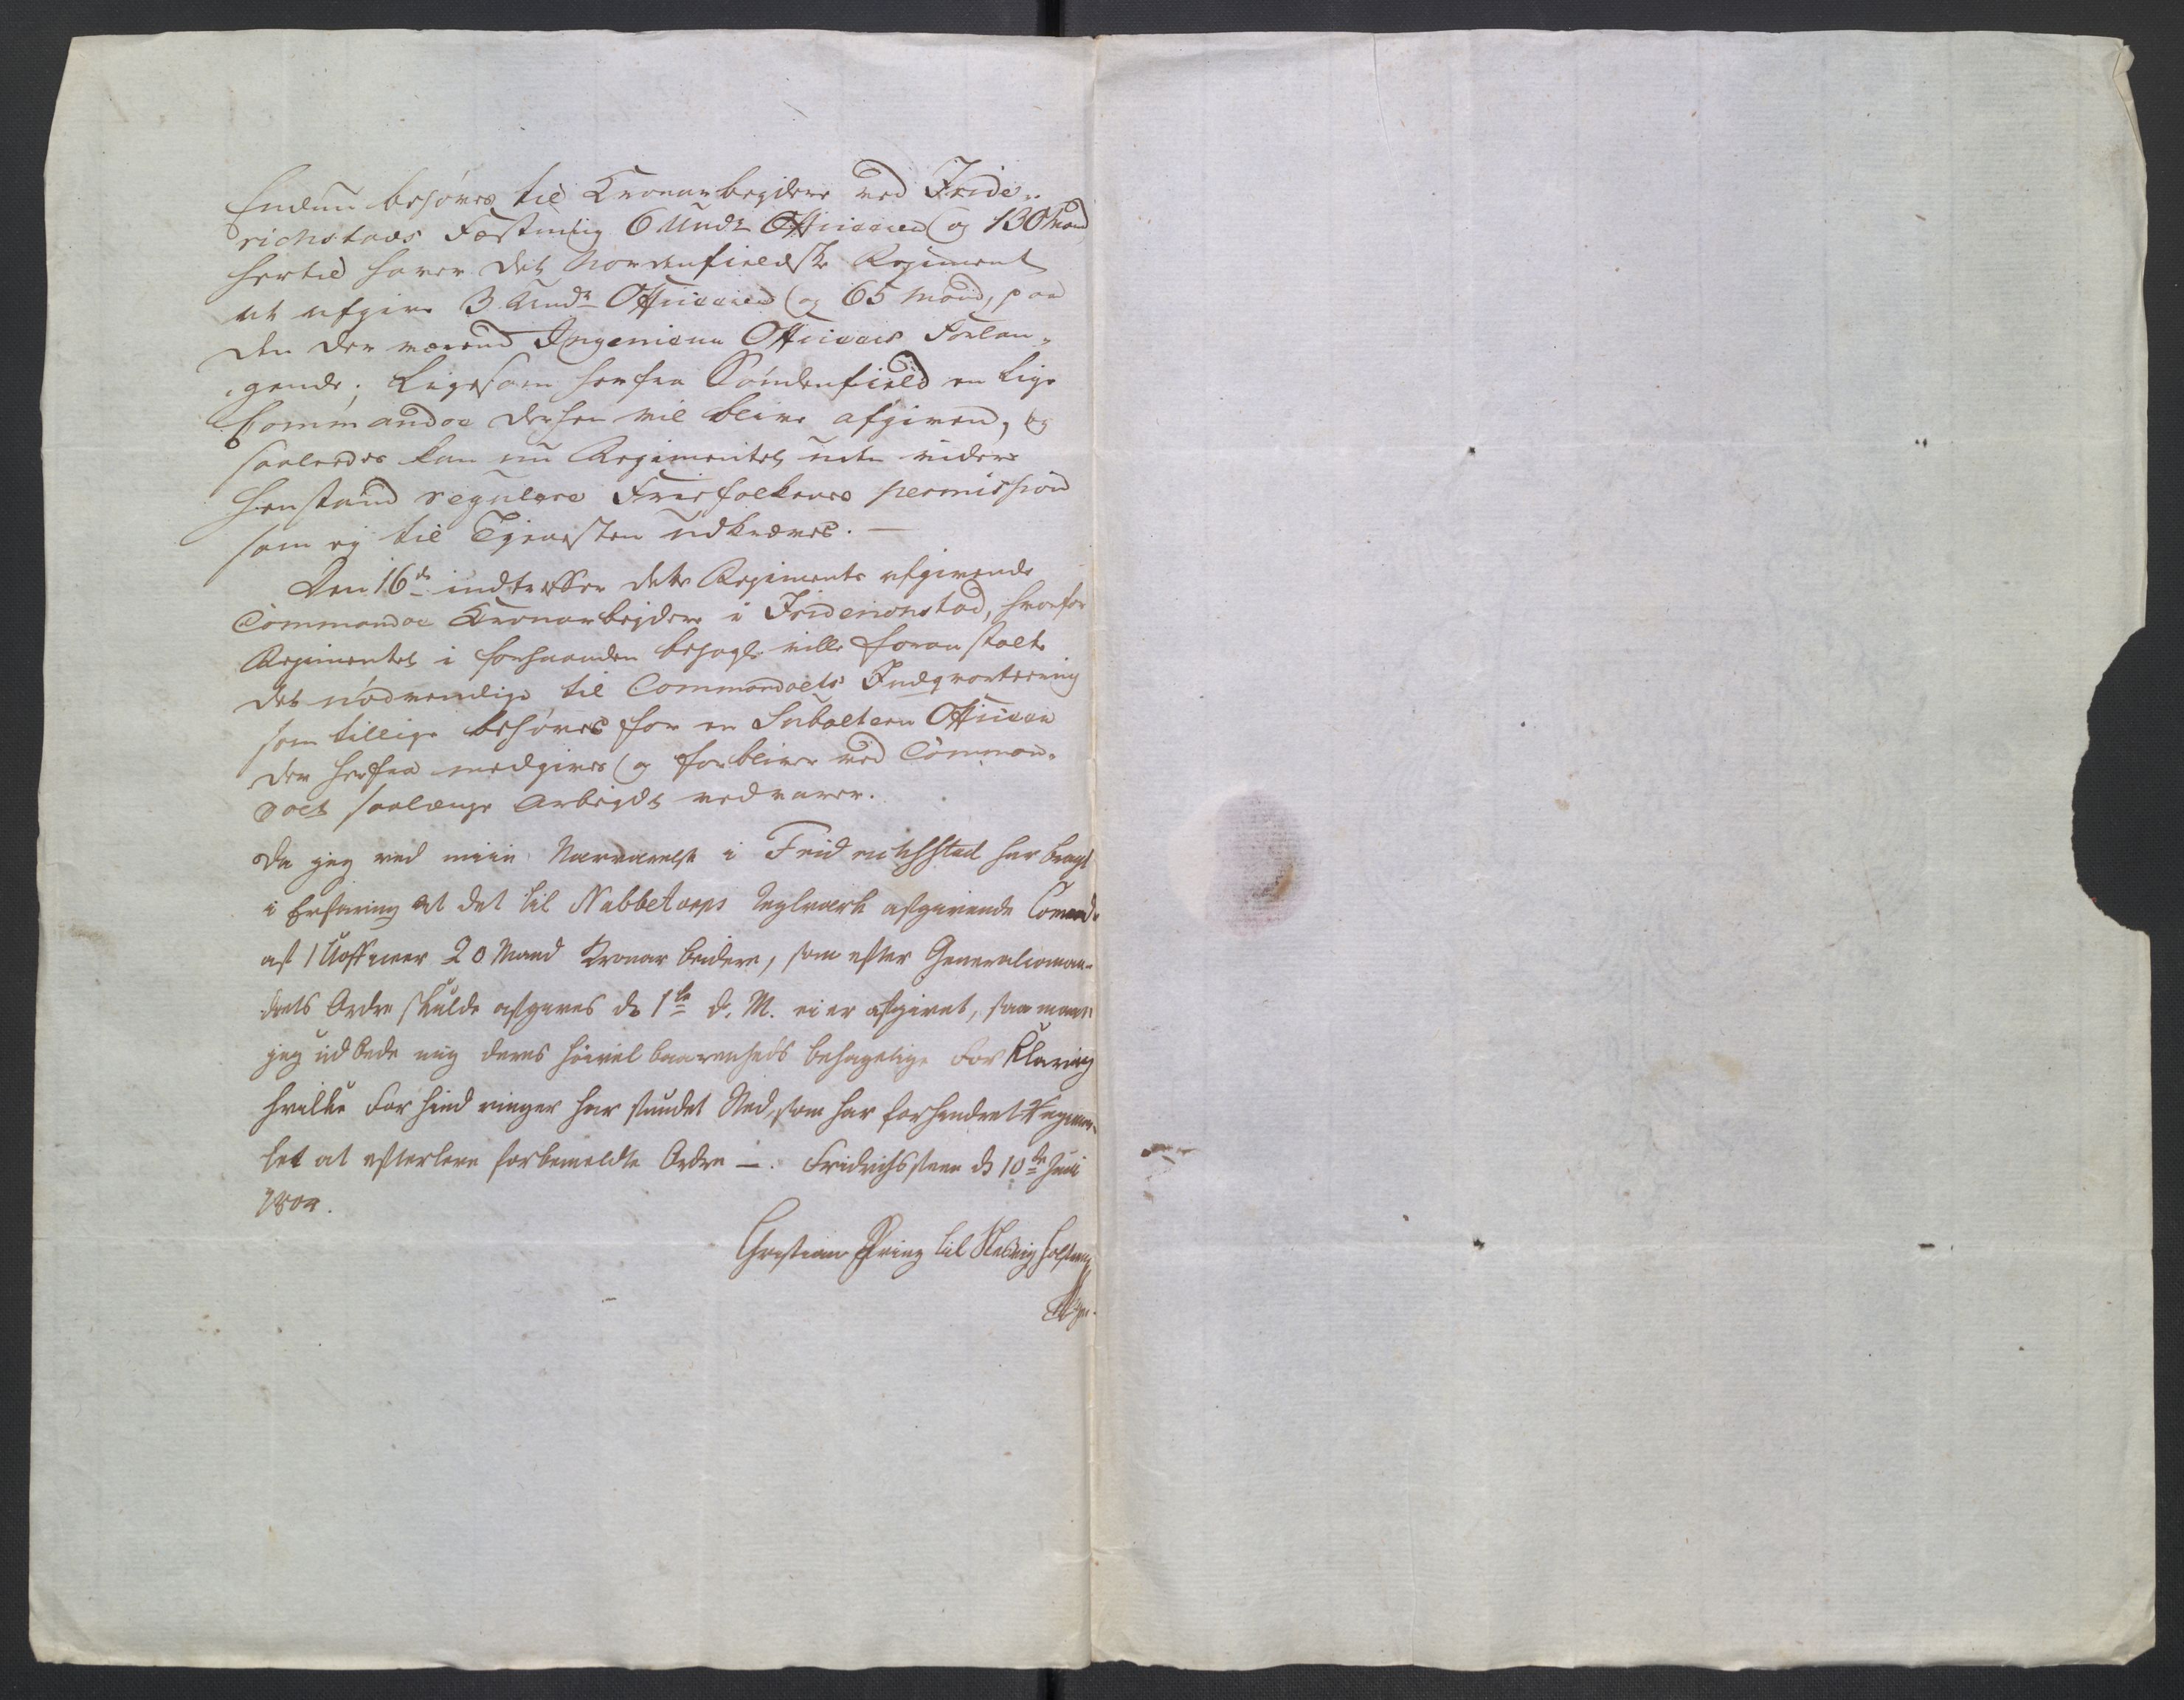 Endnu behøves til Kronarbeydere ved Fride-
richstads Fæstning 6 Undr Officerer og 130 Mand
hertil haver det Nordenfieldske Regiment
at afgive 3 Undr Officerer og 65 Mand, paa
den der værend Ingenieur Officiers Forlan-
gende; Ligesom herfra Søndenfield en lige
Commandoe derhen vil blive afgiven, og
saaledes kan nu Regimentet uden videre
Henstand regulere Friefolkenes permission
som ej til Tjenesten udkræves. —
Den 16de indtreffer dette Regiments afgivende
Commandoe Kronarbejdere i Friderichstad, hvorfor
Regimentet i forhaanden behagl: ville foranstalte
det nødvendige til Commandoets Indqvartering
som tillige behøves for en Subaltern Officeer
der herfra medgives og forbliver ved Comman-
doet saalænge Arbeydet vedvarer.
Da jeg ved min Nærværelse i Fridrichsstad har bragt
i Erfaring at det til Nabbetorps Teglværk afgivende Comand:
af 1 Uofficeer 20 Mand Kronarbeidere, som efter Generalcoman-
doets Ordre skulde afgives d: 1te d. M. ei er afgivet, saa maae
jeg udbede mig deres høivelbaarenheds behagelige Forklaring
hvilke Forhindringer har fundet Sted, som har forhindret Regimen-
tet at efterleve forbemeldte Ordre —. Fridrichssteen d: 10de Juni
1804.
Christian Prinz til Slesvig Holsteen